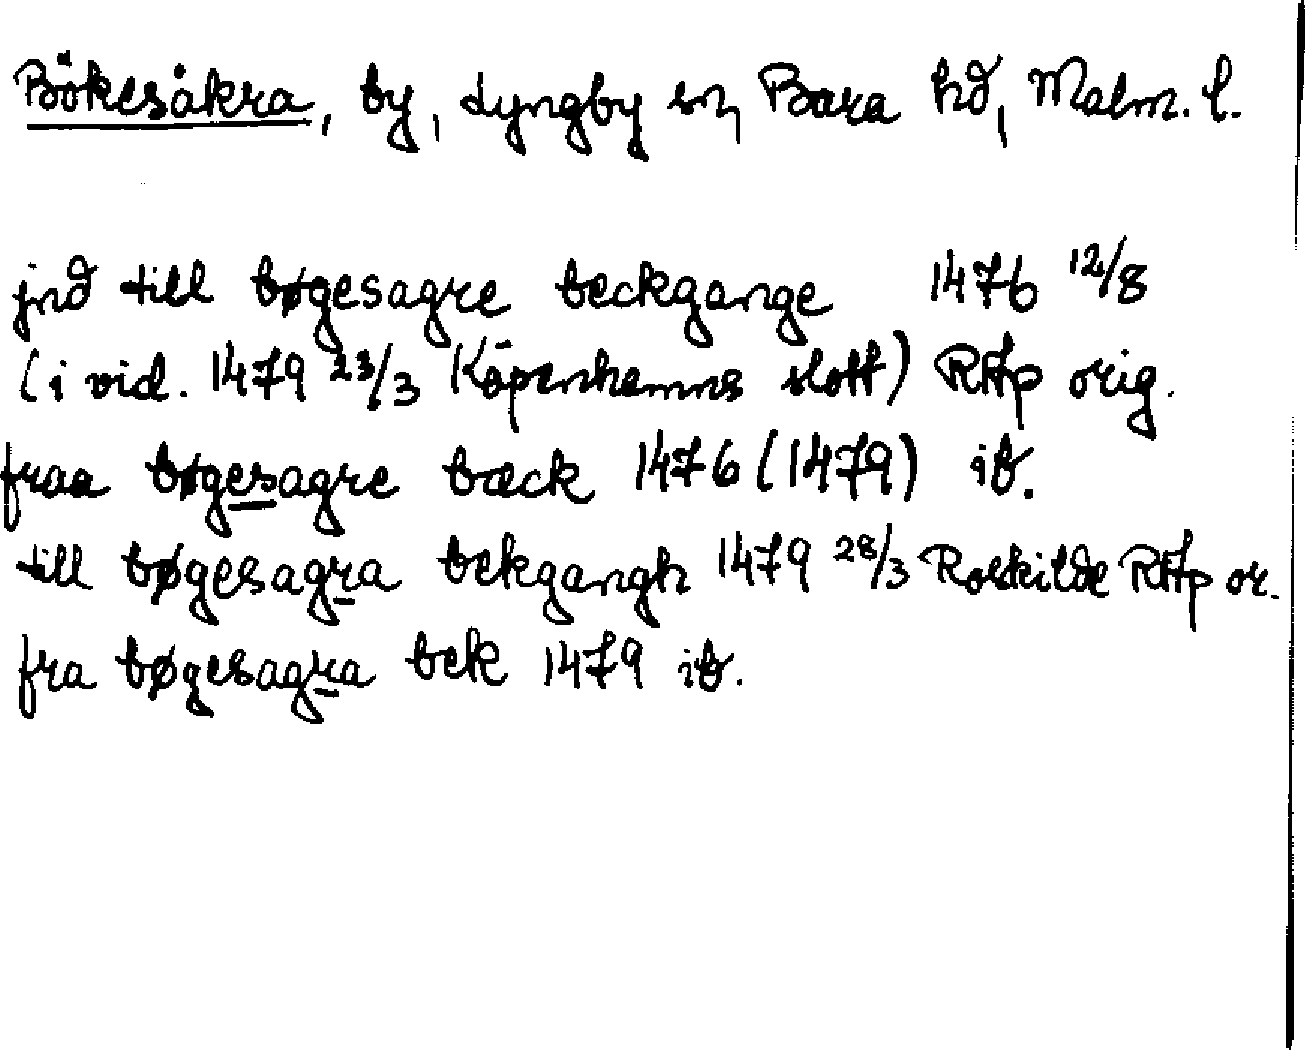 Bökesåkra, by, Lyngby sn, Bara hd, Malm. l.
jnd till bøgesagre beckgange 1476 12/8
(i vid. 1479 23/3 Köpenhamns slott) RAp orig.
fraa bøgesagre bæck 1476 (1479) ib.
till bøgesagra bekgangh 1479 28/3 Roskilde RAp or.
fra bøgesagra bek 1479 ib.